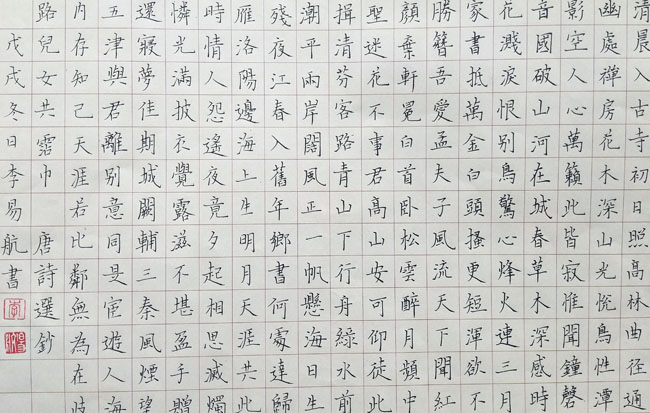 清晨入古寺初日照高林曲徑通
幽處禪房花木深山光悅鳥性潭
影空人心萬籟此皆寂惟聞鐘磬
音國破山河在城春草木深感時
花濺淚恨別鳥驚心烽火連三月
家書抵萬金白頭搔更短渾欲不
勝簪吾愛孟夫子風流天下聞紅
顏棄軒冕白首卧松雲醉月頻中
聖迷花不事君高山安可仰徒此
揖清芬客路青山下行舟綠水前
潮平兩岸闊風正一帆懸海日生
殘夜江春入舊年鄉書何處達歸
雁洛陽邊海上生明月天涯共此
時情人怨遙夜竟夕起相思滅燭
憐光滿披衣覺露滋不堪盈手贈
還寢夢佳期城闕輔三秦風煙望
五津與君離別意同是宦遊人海
内存知己天涯若比鄰無為在歧
路兒女共霑巾 唐詩選鈔
戊戌冬日李易航書